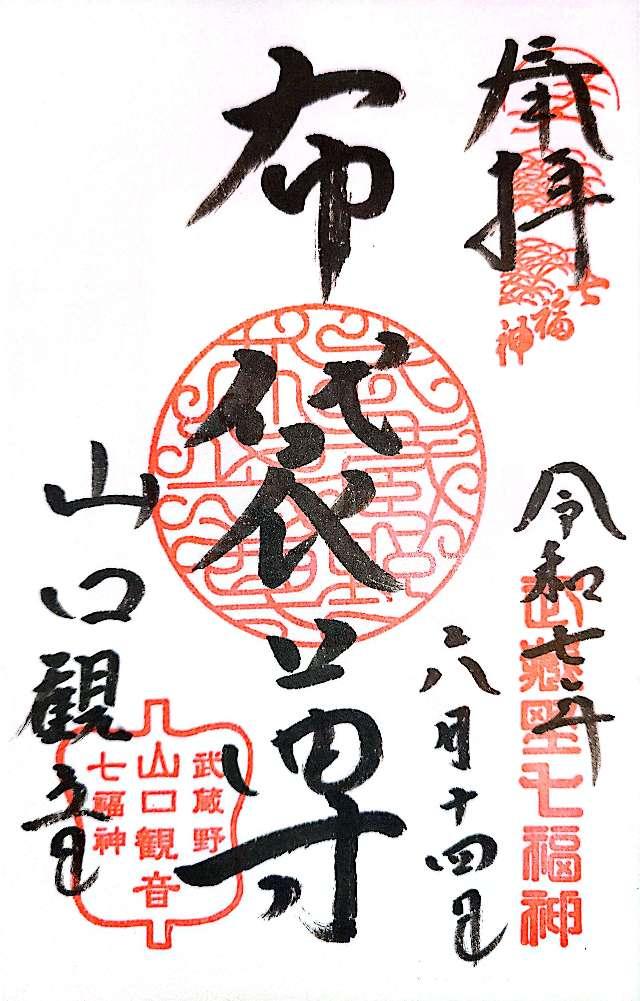 奉拝
七福神
令和七年
武蔵野七福神
六月十四日
布袋尊
山口観音
武蔵野
山口観音
七福神